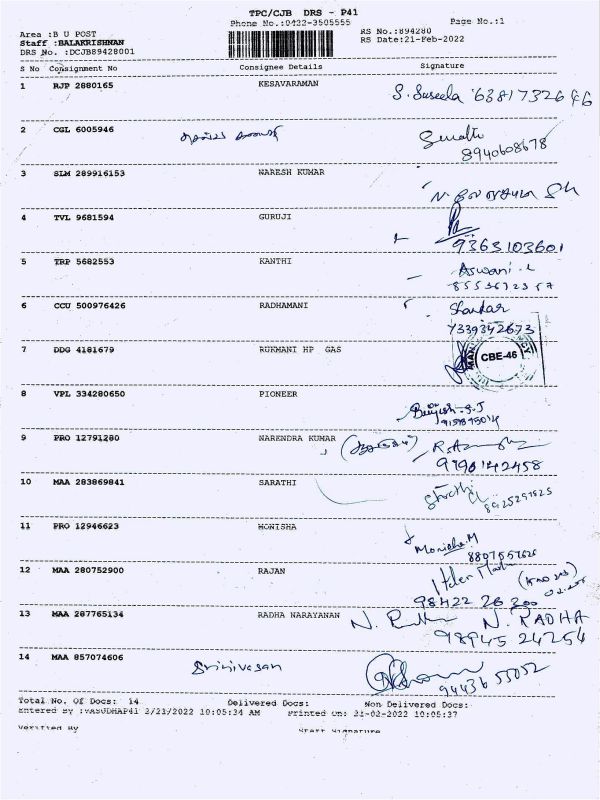 TPC/CJB DRS - P41
Phone No.:0422-3505555
Page No.:1
Area :B U POST
RS No.:894280
Staff :BALAKRISHNAN
RS Date:21-Feb-2022
DRS No. :DCJB89428001
S No Consignment No Consignee Details Signature
1 RJP 2880165 KESAVARAMAN S. Suseela 6381732646
2 CGL 6005946
8940608678
3 SLM 289916153 NARESH KUMAR
4 TVL 9681594 GURUJI
9363103601
5 TRP 5682553 KANTHI Aswani
6 CCU 500976426 RADHAMANI
7339342673
7 DDG 4181679 RUKMANI HP GAS
CBE-46
8 VPL 334280650 PIONEER
9 PRO 12791280 NARENDRA KUMAR
9790142458
10 MAA 283869841 SARATHI
11 PRO 12946623 MONISHA
Monisha M
12 MAA 280752900 RAJAN
98422 26 200
13 MAA 287765134 RADHA NARAYANAN N. RADHA
98945 24254
14 MAA 857074606 Srinivasan
9443655052
Total No. Of Docs: 14 Delivered Docs: Non Delivered Docs:
Entered By :VASUDHAP41 2/21/2022 10:05:34 AM Printed On: 21-02-2022 10:05:37
Verified By Staff Signature